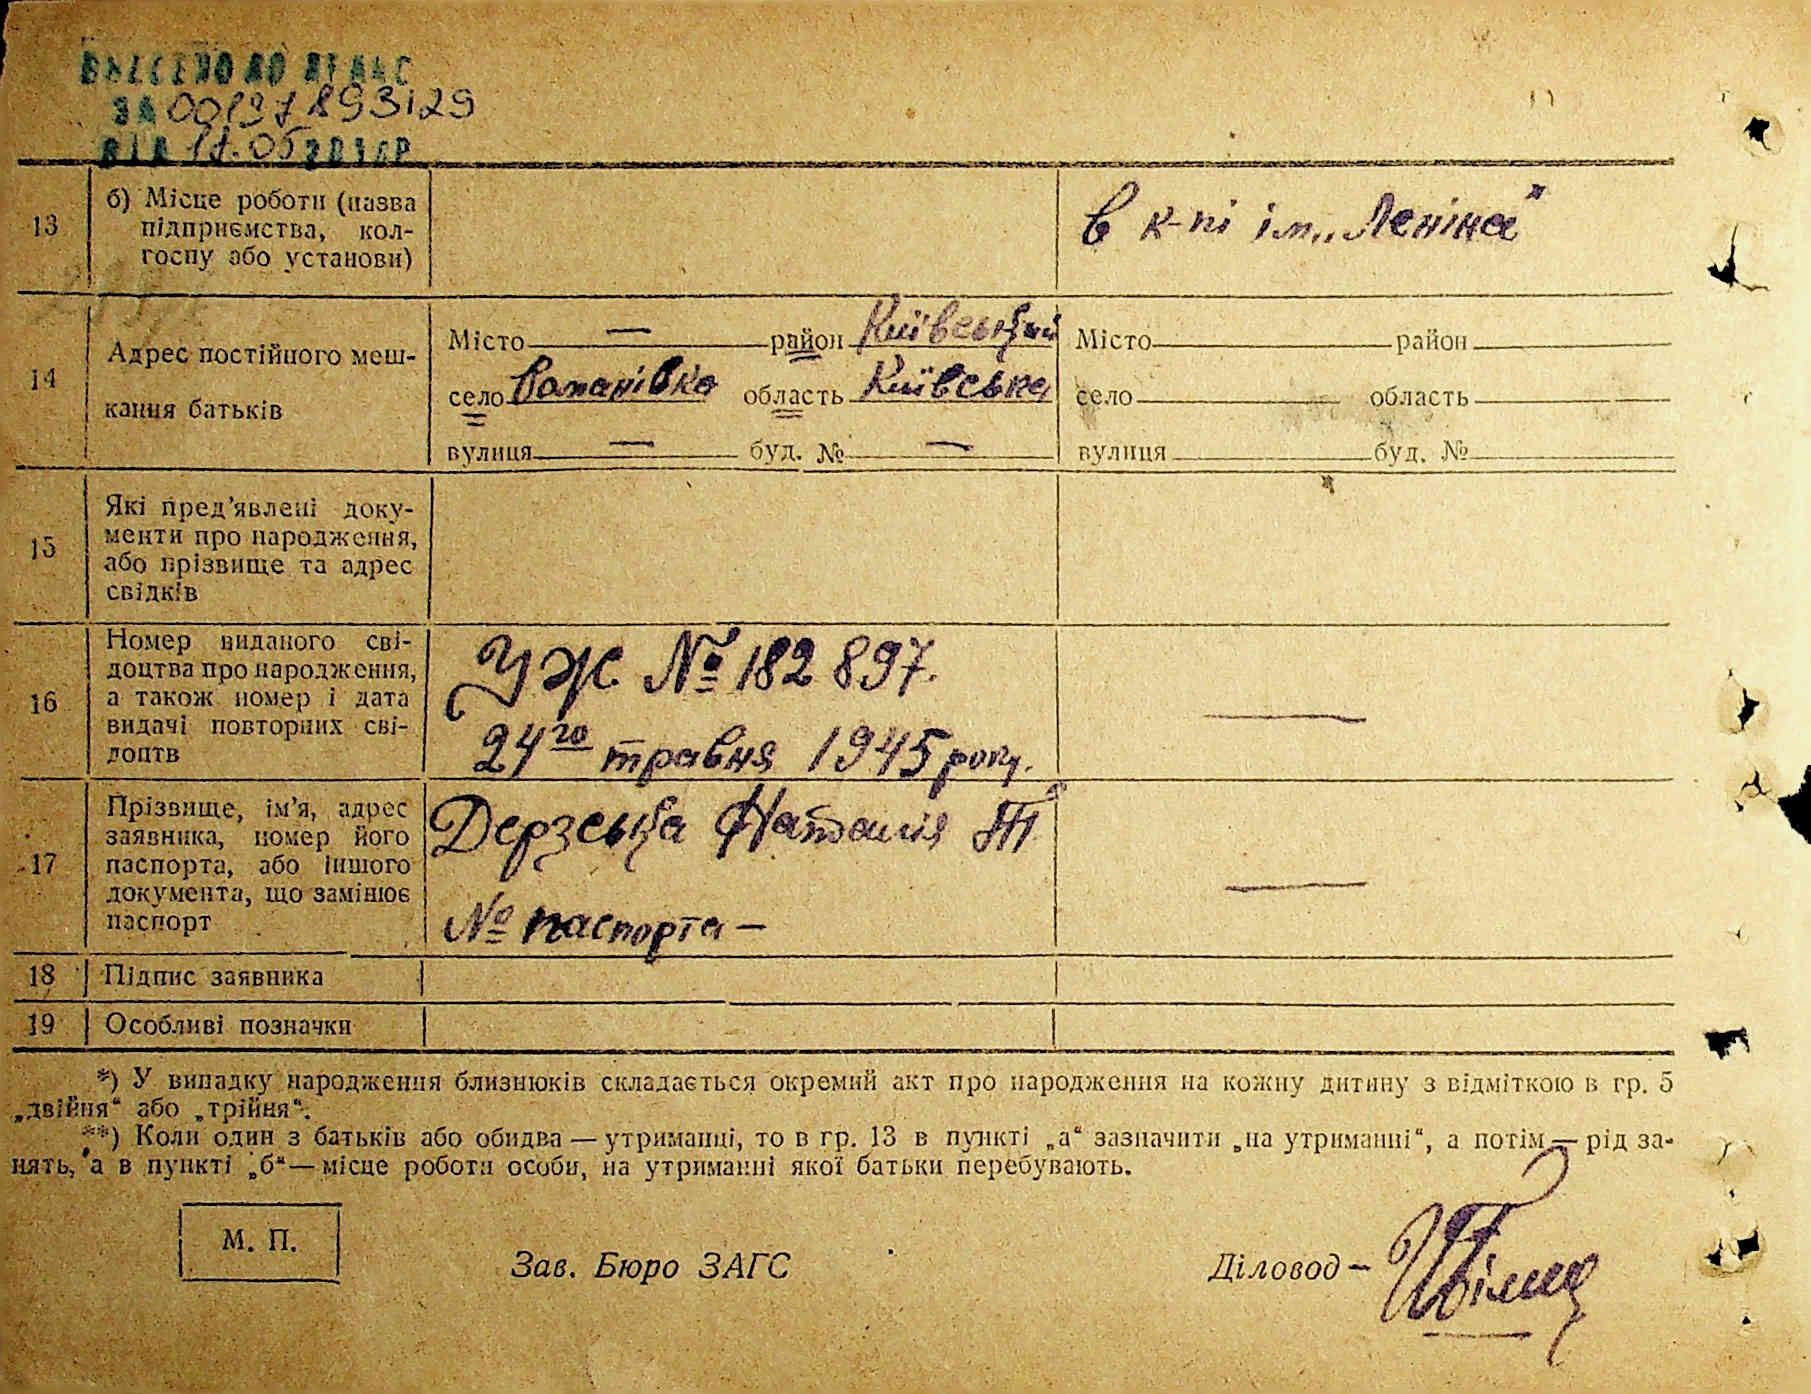 ВНЕСЕНО ДО ДРАЦС
ЗА 00137893129
ВІД 11.05 201 Р
13
б) Місце роботи (назва
підприємства, кол-
госпу або установи)
в к-пі ім. „Леніна"
14
Адрес постійного меш-
кання батьків
Місто — район Київський
село Романівка область Київська
вулиця — буд. № —
Місто район
село область
вулиця буд. №
15
Які пред'явлені доку-
менти про народження,
або прізвище та адрес
свідків
16
Номер виданого сві-
доцтва про народження,
а також номер і дата
видачі повторних сві-
доцтв
УЖ № 182 897.
24го травня 1945 року.
—
17
Прізвище, ім'я, адрес
заявника, номер його
паспорта, або іншого
документа, що замінює
паспорт
Дерзська Наталія
№ паспорта —
—
18 Підпис заявника
19 Особливі позначки
*) У випадку народження близнюків складається окремий акт про народження на кожну дитину з відміткою в гр. 5
„двійня“ або „трійня“.
**) Коли один з батьків або обидва — утриманці, то в гр. 13 в пункті „а“ зазначити „на утриманні“, а потім — рід за-
нять, а в пункті „б“ — місце роботи особи, на утриманні якої батьки перебувають.
М. П.
Зав. Бюро ЗАГС
Діловод —